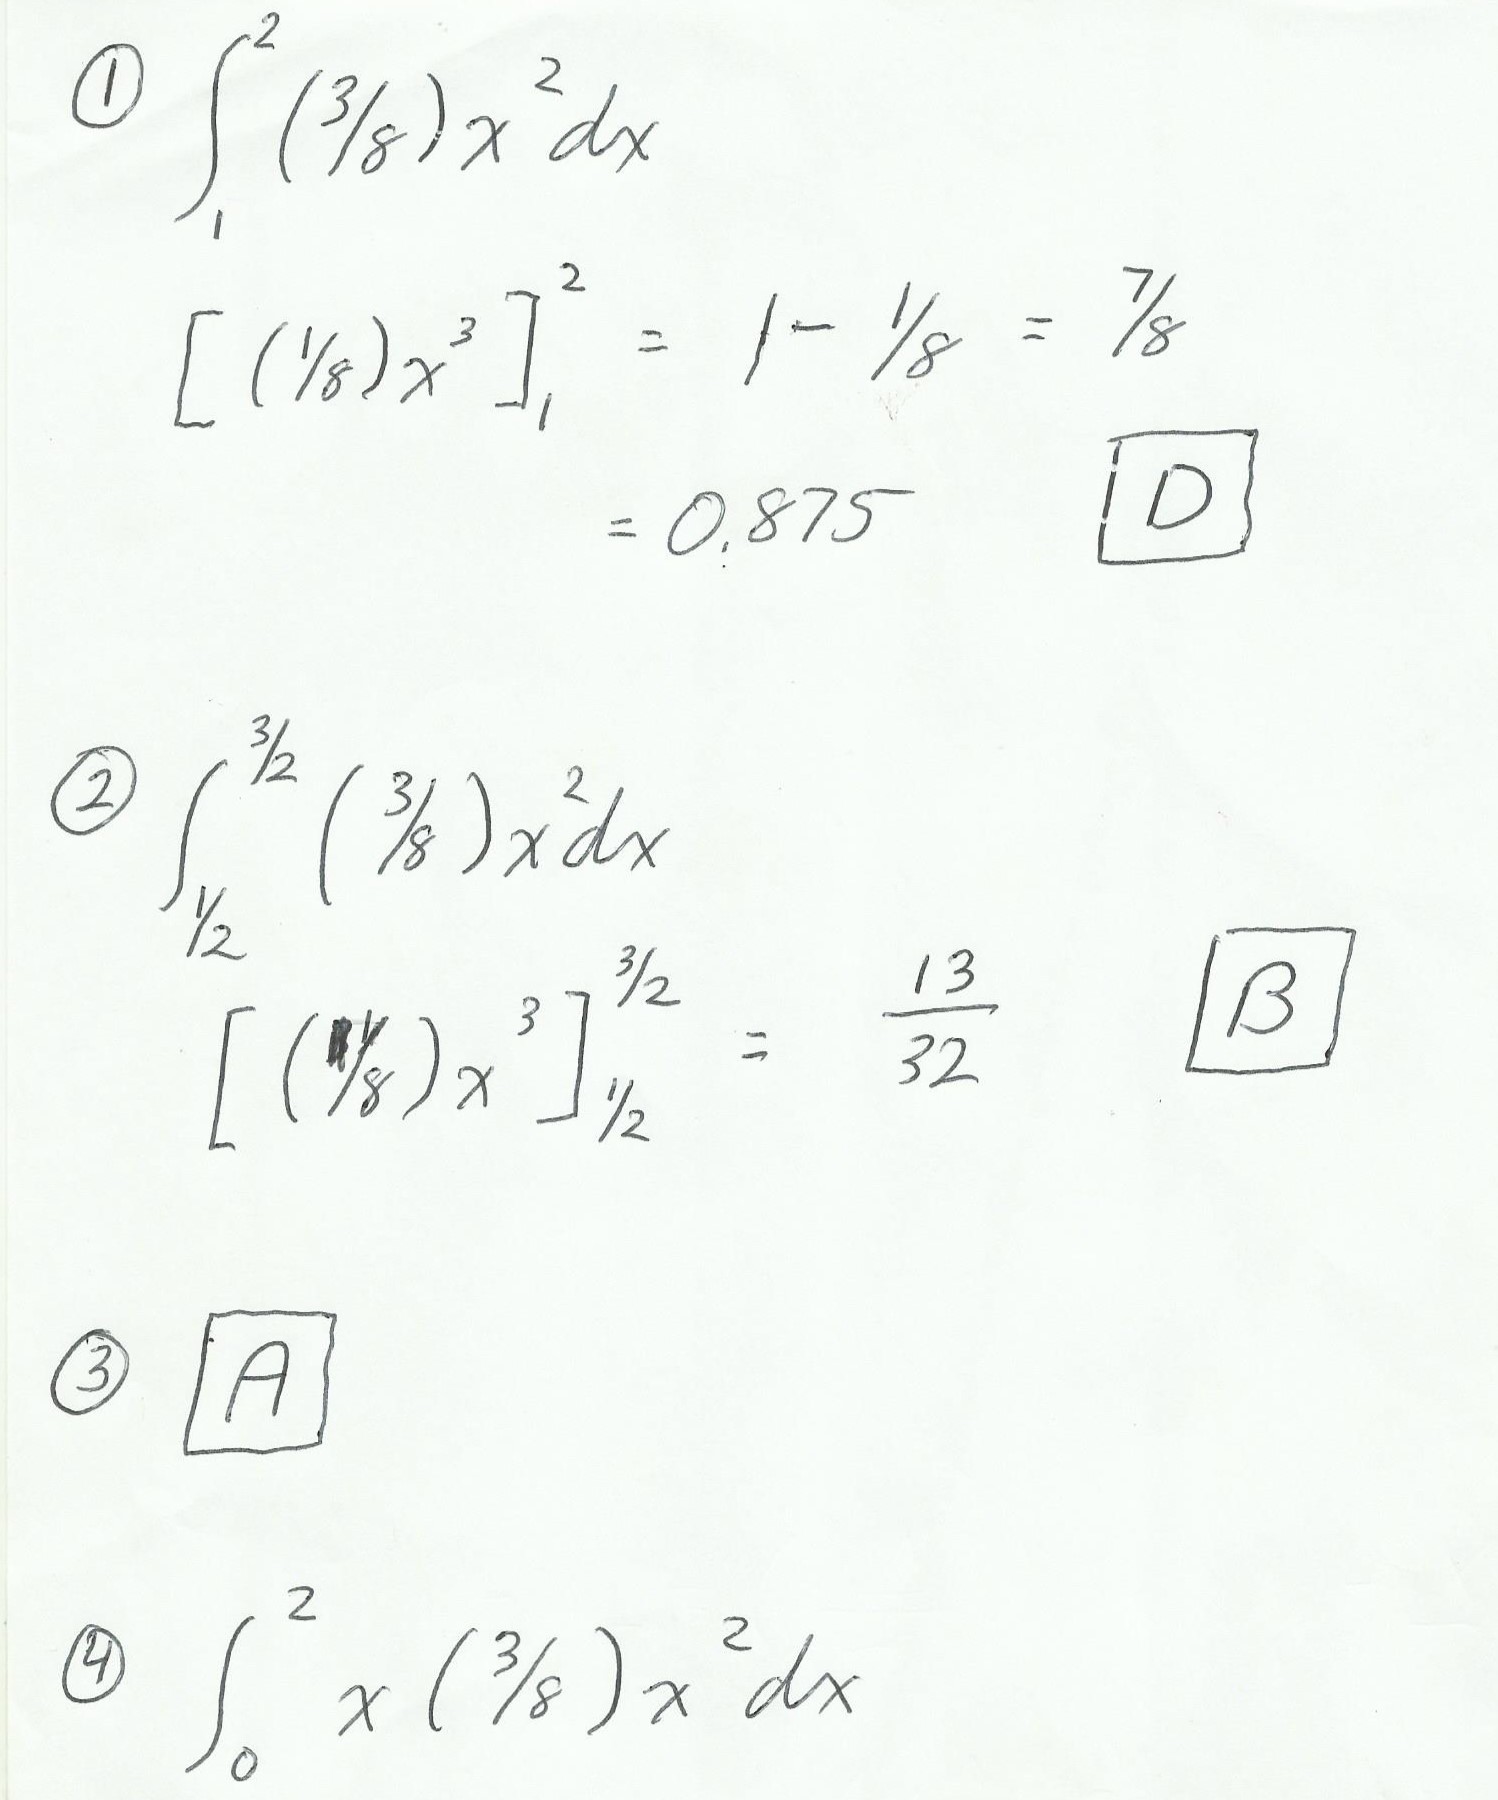 ① ∫₁² (3/8) x² dx
[(1/8) x³]₁² = 1 - 1/8 = 7/8
= 0.875 D
② ∫_{1/2}^{3/2} (3/8) x² dx
[(1/8) x³]_{1/2}^{3/2} = 13/32 B
③ A
④ ∫₀² x (3/8) x² dx